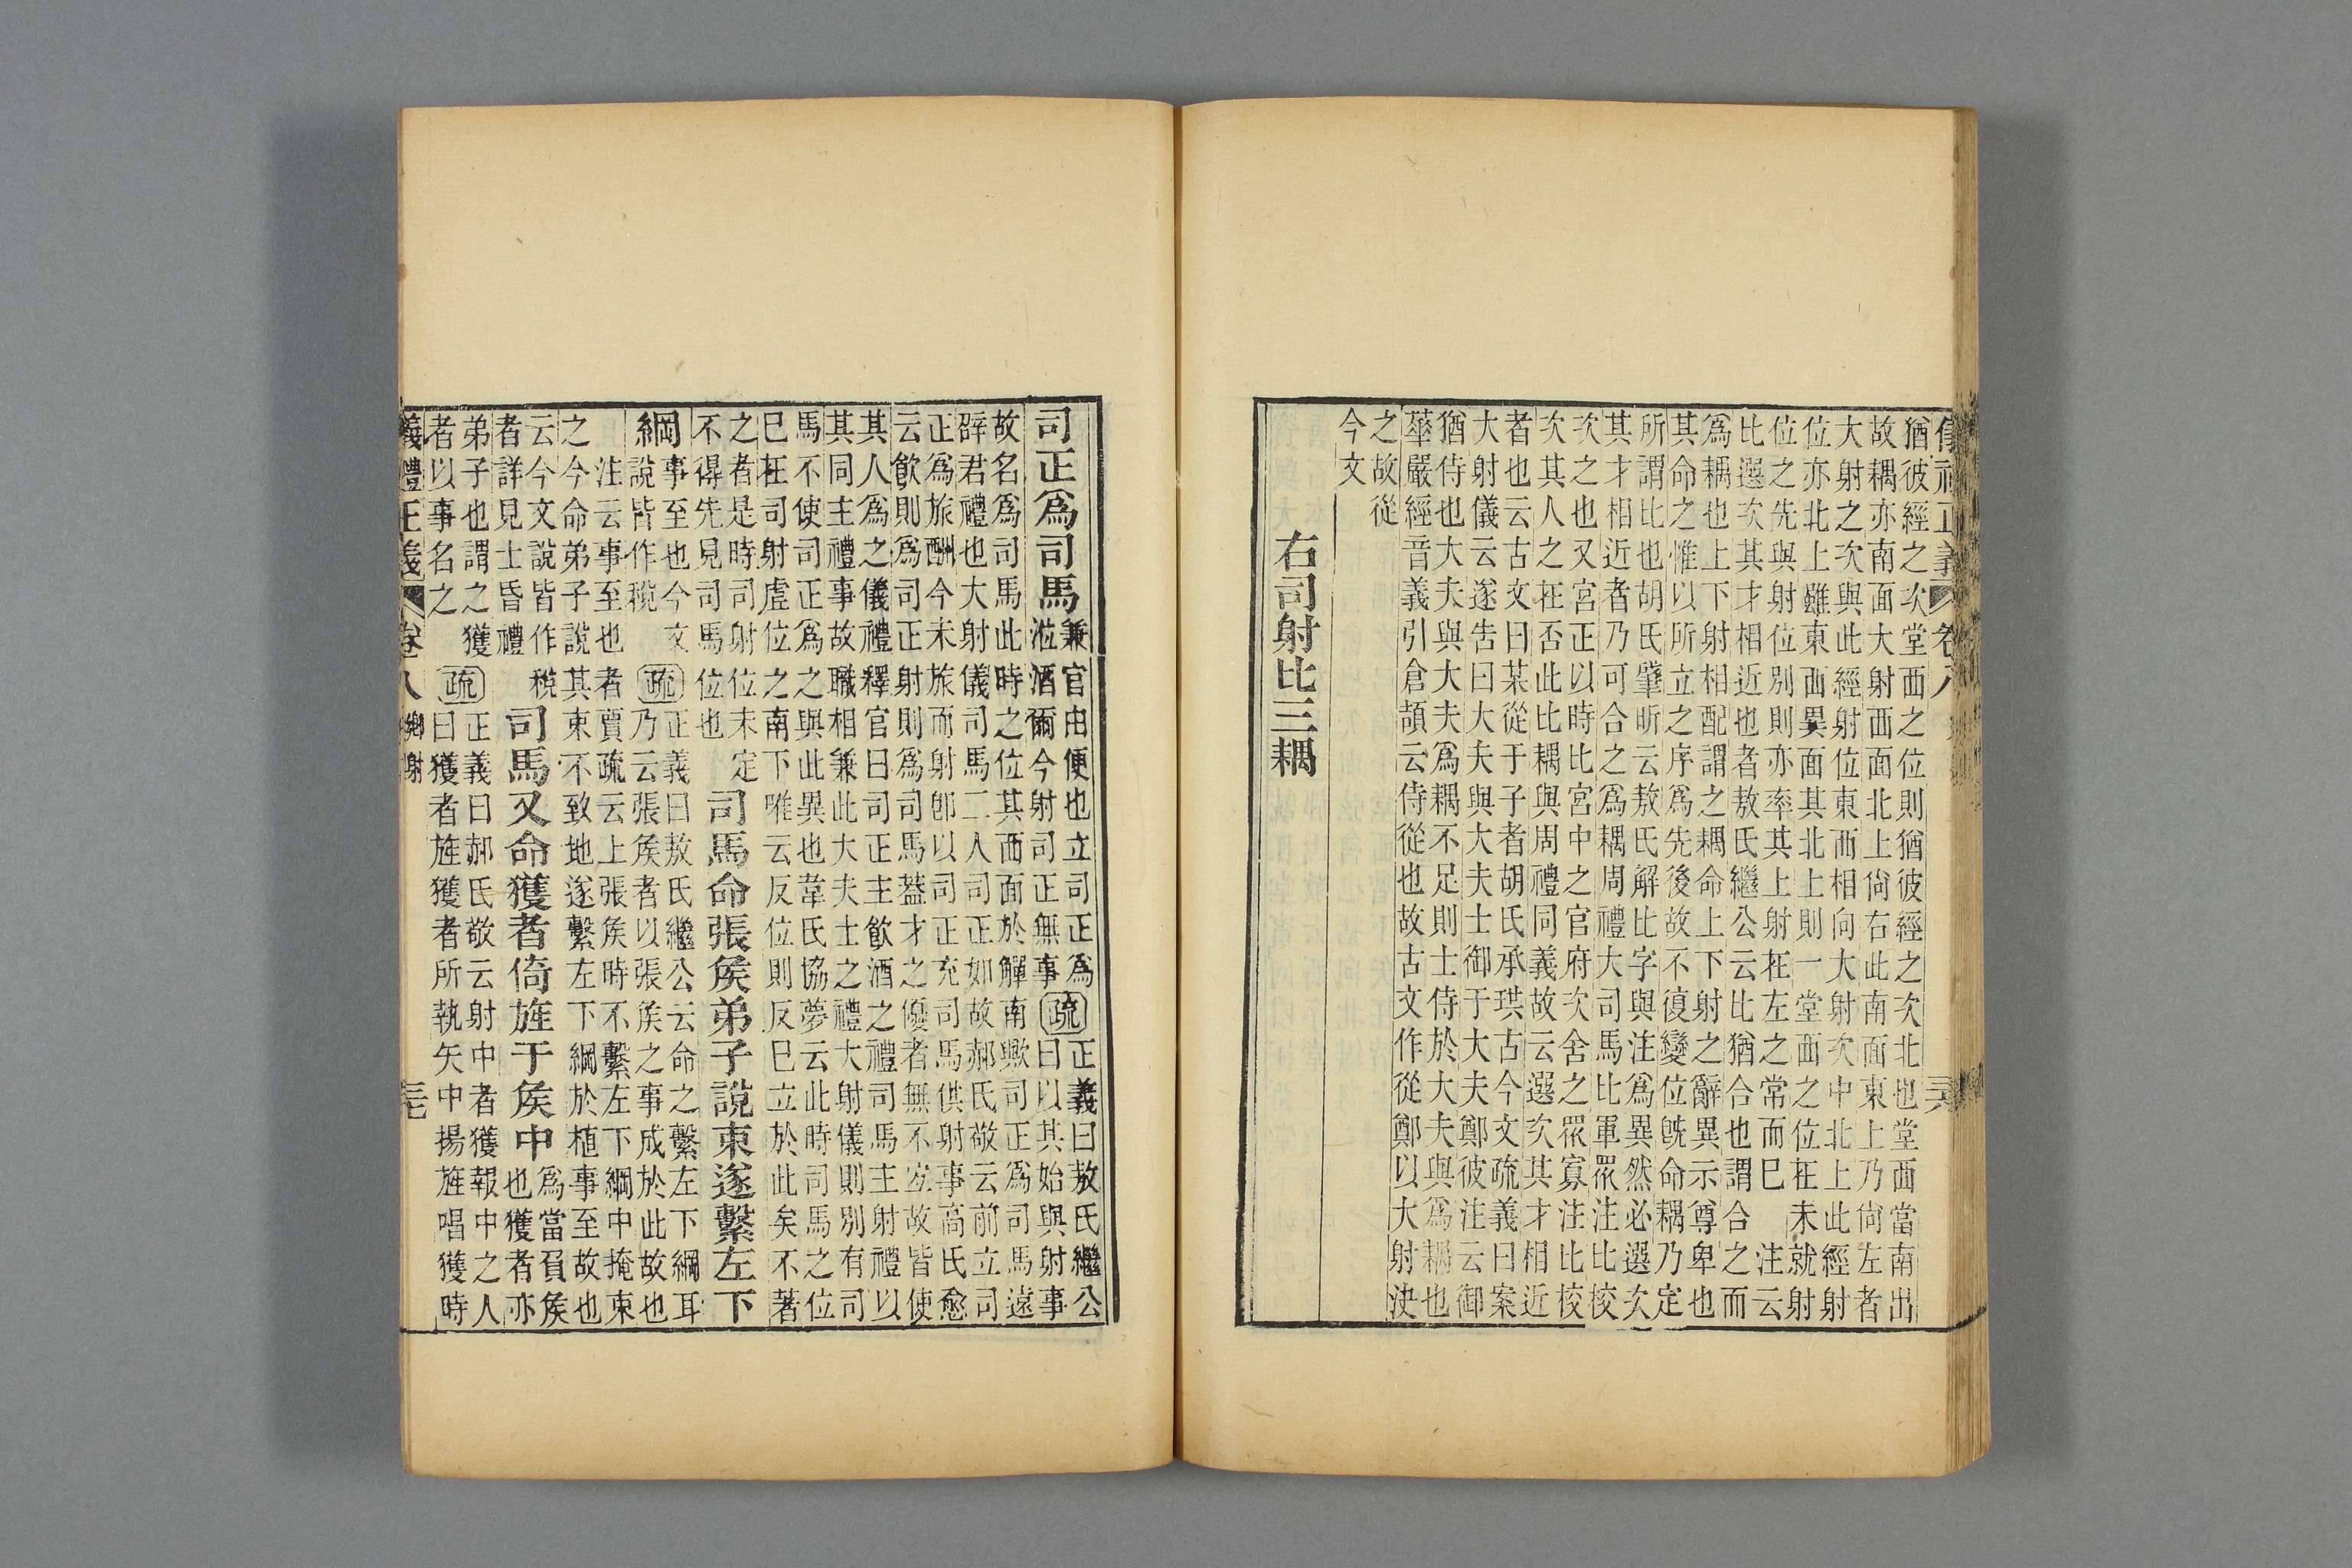 儀禮正義 卷八 三十六
猶彼經之次堂西之位則猶彼經之次北也堂西當南出
故耦亦南面大射西面北上尙右此南面東上乃尙左者
大射之次與此經射位東西相向大射次中北上此經射
位亦北上雖東西異面其北上則一堂西之位在未就射
位之先與射位別則亦率其上射在左之常而巳 注云
比選次其才相近也者敖氏繼公云比猶合也謂合之而
爲耦也上下射相配謂之耦命上下射之辭異示尊卑也
其命之惟以所立之序爲先後故不復變位旣命耦乃定
所謂比也胡氏肇昕云敖氏解比字與注爲異然必選次
其才相近者乃可合之爲耦周禮大司馬比軍眾注比校
次之也又宮正以時比宮中之官府次舍之眾寡注比校
次其人之在否此比耦與周禮同義故云選次其才相近
者也云古文曰某從于子者胡氏承珙古今文疏義曰案
大射儀云遂告曰大夫與大夫士御于大夫鄭彼注云御
猶侍也大夫與大夫爲耦不足則士侍於大夫與爲耦也
蕐嚴經音義引倉頡云侍從也故古文作從鄭以大射決
之故從
今文
右司射比三耦
司正爲司馬兼官由便也立司正爲
涖酒爾今射司正無事疏正義曰敖氏繼公
曰以其始與射事
故名爲司馬此時之位其西面於觶南歟司正爲司馬遠
辟君禮也大射儀司馬二人司正如故郝氏敬云前立司
正爲旅酬今未旅而射卽以司正充司馬供射事高氏愈
云飲則爲司正射則爲司馬蓋才之優者無不宐故皆使
其人爲之儀禮釋官曰司正主飲酒之禮司馬主射禮以
其同主禮事故職相兼此大夫士之禮大射儀則別有司
馬不使司正爲之與此異也韋氏協夢云此時司馬之位
巳在司射虛位之南下唯云反位則反巳立於此矣不著
之者是時司射位未定
不得先見司馬位也
司馬命張侯弟子說束遂繫左下
綱事至也今文
說皆作稅疏正義曰敖氏繼公云命之繫左下綱耳
乃云張侯者以張侯之事成於此故也
注云事至也者賈疏云上張侯時不繫左下綱中掩束
之今命弟子說其束不致地遂繫左下綱於植事至故也
云今文說皆作稅
者詳見士昏禮
司馬又命獲者倚旌于侯中爲當負侯
也獲者亦
弟子也謂之獲
者以事名之疏正義曰郝氏敬云射中者獲報中之人
曰獲者旌獲者所執矢中揚旌唱獲時
儀禮正義 卷八 鄉射 三十七